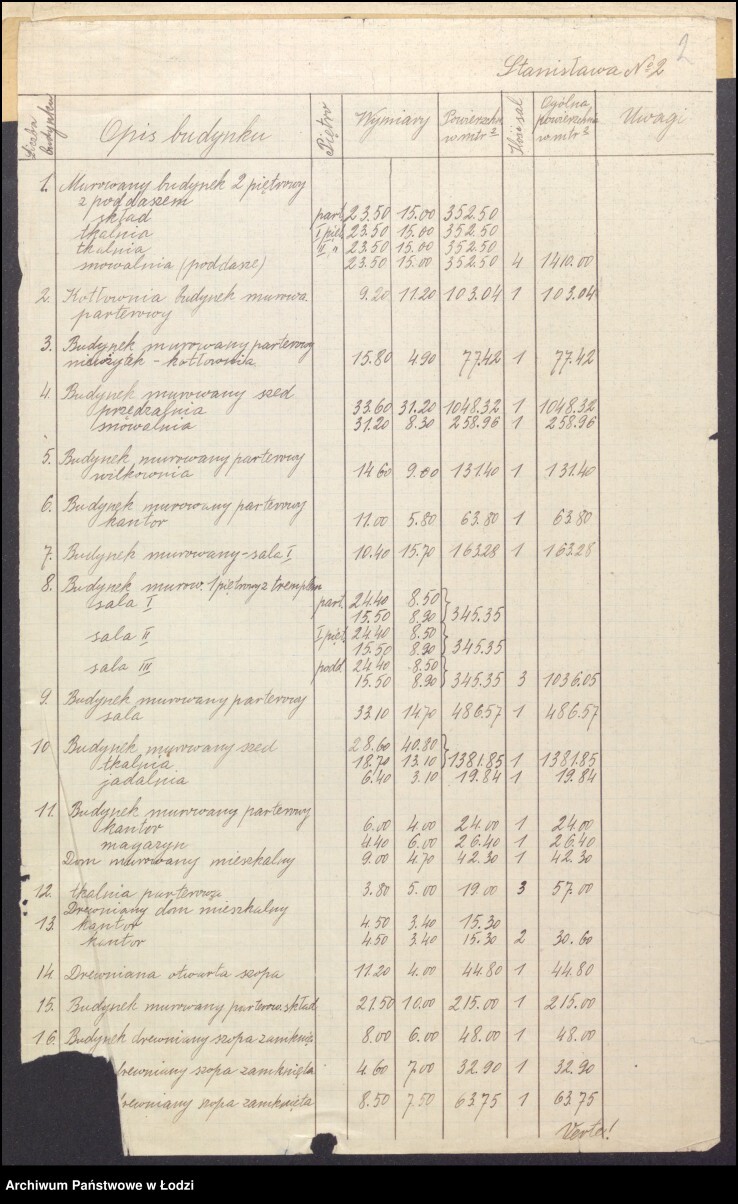 2
Stanisława № 2
Liczba budynku Opis budynku Piętro Wymiary Powierzchn. w mtr² Ilość sal Ogólna powierzchnia w mtr² Uwagi
1. Murowany budynek 2 piętrowy
z poddaszem
skład part. 23.50 15.00 352.50
tkalnia I pięt. 23.50 15.00 352.50
tkalnia II " 23.50 15.00 352.50
snowalnia (poddasze) 23.50 15.00 352.50 4 1410.00
2. Kotłownia budynek murowa. 9.20 11.20 103.04 1 103.04
parterowy
3. Budynek murowany parterowy
nieużytek - kotłownia 15.80 4.90 77.42 1 77.42
4. Budynek murowany szed
przędzalnia 33.60 31.20 1048.32 1 1048.32
snowalnia 31.20 8.30 258.96 1 258.96
5. Budynek murowany parterowy
wilkownia 14.60 9.00 131.40 1 131.40
6. Budynek murowany parterowy
kantor 11.00 5.80 63.80 1 63.80
7. Budynek murowany - sala I 10.40 15.70 163.28 1 163.28
8. Budynek murow. 1 piętrowy z
sala I part. 24.40 8.50
15.50 8.90 345.35
sala II I pięt. 24.40 8.50
15.50 8.90 345.35
sala III podd. 24.40 8.50
15.50 8.90 345.35 3 1036.05
9. Budynek murowany parterowy
sala 33.10 14.70 486.57 1 486.57
10. Budynek murowany szed 28.60 40.80
tkalnia 18.70 13.10 1381.85 1 1381.85
jadalnia 6.40 3.10 19.84 1 19.84
11. Budynek murowany parterowy
kantor 6.00 4.00 24.00 1 24.00
magazyn 4.40 6.00 26.40 1 26.40
Dom murowany mieszkalny 9.00 4.70 42.30 1 42.30
12. tkalnia parterowa 3.80 5.00 19.00 3 57.00
Drewniany dom mieszkalny
13. kantor 4.50 3.40 15.30
kantor 4.50 3.40 15.30 2 30.60
14. Drewniana otwarta szopa 11.20 4.00 44.80 1 44.80
15. Budynek murowany parterow. skład 21.50 10.00 215.00 1 215.00
16. Budynek drewniany szopa zamknię. 8.00 6.00 48.00 1 48.00
drewniany szopa zamknięta 4.60 7.00 32.90 1 32.90
drewniany szopa zamknięta 8.50 7.50 63.75 1 63.75
Verte!
Archiwum Państwowe w Łodzi